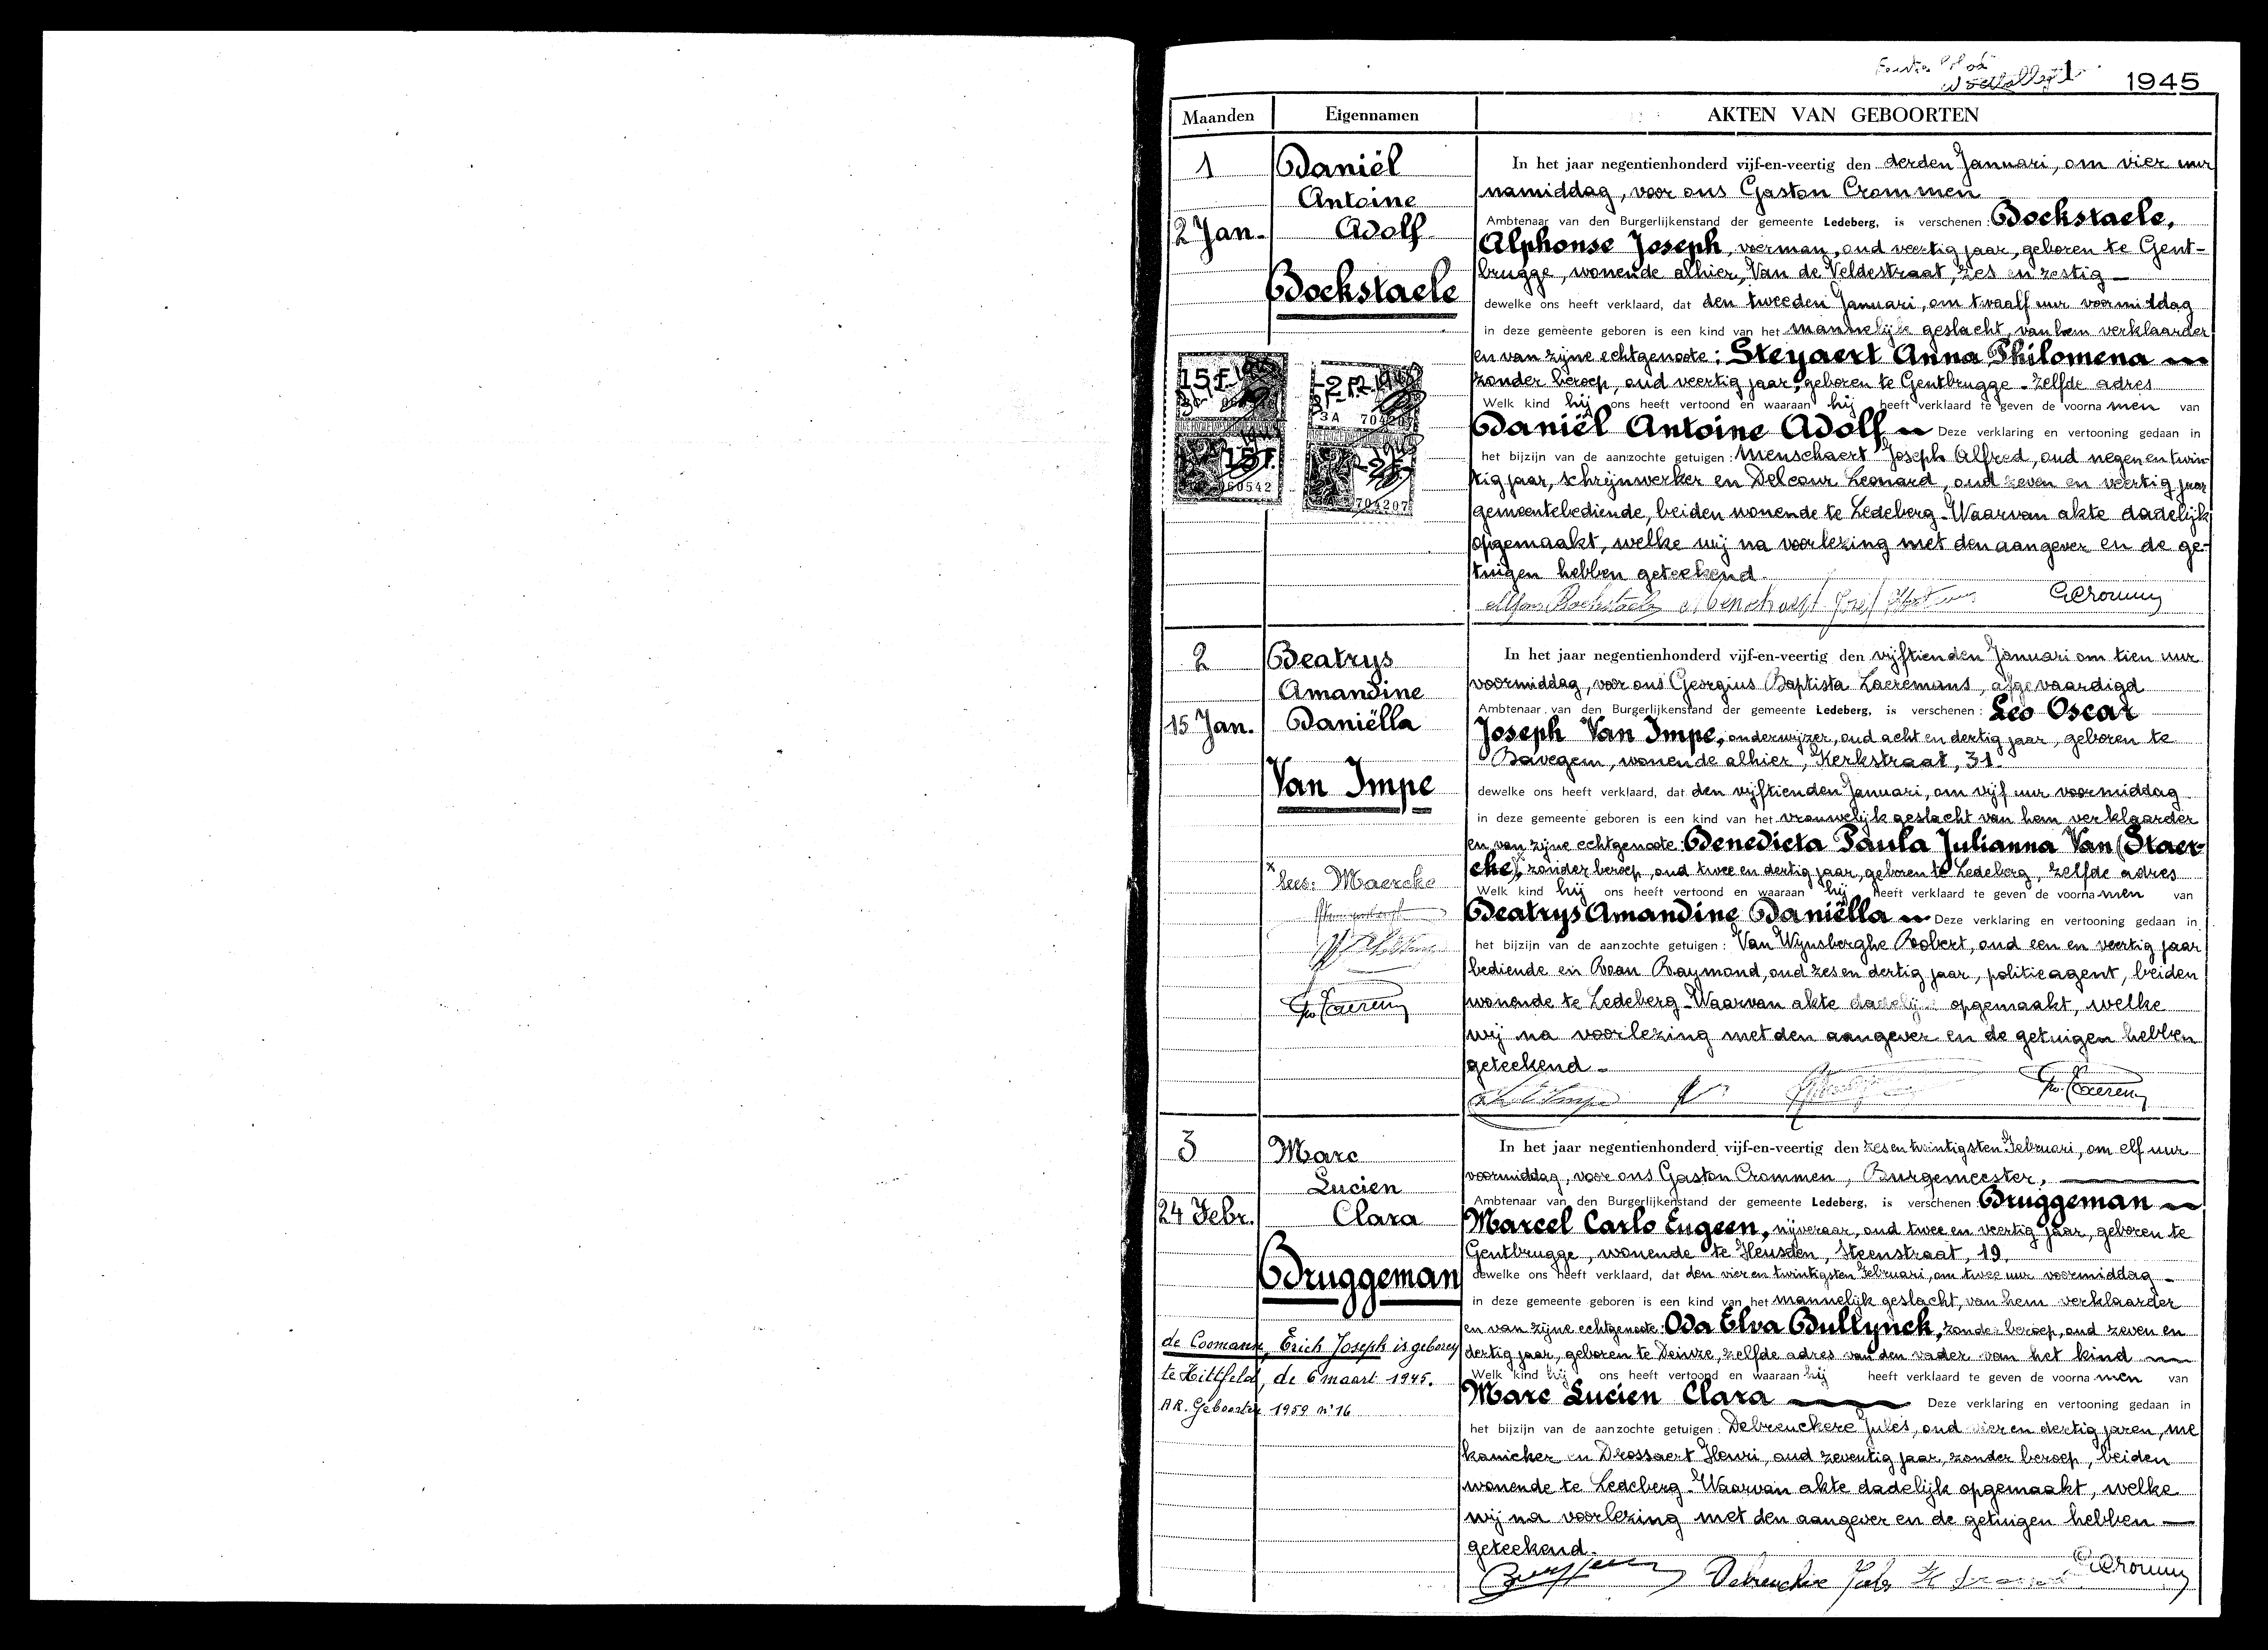 1
1945
Maanden
Eigennamen
AKTEN VAN GEBOORTEN
1
2 Jan.
Daniël
Antoine
Adolf
Bockstaele
15 f
1945
060542
2 f
1945
3A 704207
704207
In het jaar negentienhonderd vijf-en-veertig den derden Januari, om vier uur
namiddag, voor ons Gaston Crommen
Ambtenaar van den Burgerlijkenstand der gemeente Ledeberg, is verschenen: Bockstaele,
Alphonse Joseph, voerman, oud veertig jaar, geboren te Gent-
brugge, wonende alhier, Van de Veldestraat, zes en zestig —
dewelke ons heeft verklaard, dat den tweeden Januari, om twaalf uur voormiddag
in deze gemeente geboren is een kind van het mannelijk geslacht, van hem verklaarder
en van zijne echtgenoote: Steyaert Anna Philomena —
zonder beroep, oud veertig jaar, geboren te Gentbrugge - zelfde adres
Welk kind hij ons heeft vertoond en waaraan hij heeft verklaard te geven de voornamen van
Daniël Antoine Adolf — Deze verklaring en vertooning gedaan in
het bijzijn van de aanzochte getuigen: Menschaert Joseph Alfred, oud negen en twin-
tig jaar, schrijnwerker en Delcour Leonard, oud zeven en veertig jaar
gemeentebediende, beiden wonende te Ledeberg - Waarvan akte dadelijk
opgemaakt, welke wij na voorlezing met den aangever en de ge-
tuigen hebben geteekend.
2
15 Jan.
Beatrys
Amandine
Daniëlla
Van Impe
x lees: Maercke
In het jaar negentienhonderd vijf-en-veertig den vijftienden Januari om tien uur
voormiddag, voor ons Georgius Baptista Laeremans, afgevaardigd
Ambtenaar van den Burgerlijkenstand der gemeente Ledeberg, is verschenen: Leo Oscar
Joseph Van Impe, onderwijzer, oud acht en dertig jaar, geboren te
Bavegem, wonende alhier, Kerkstraat, 31.
dewelke ons heeft verklaard, dat den vijftienden Januari, om vijf uur voormiddag
in deze gemeente geboren is een kind van het vrouwelijk geslacht van hem verklaarder
en van zijne echtgenoote: Benedicta Paula Julianna Van (Staer-
cke)x, zonder beroep, oud twee en dertig jaar, geboren te Ledeberg, zelfde adres
Welk kind hij ons heeft vertoond en waaraan hij heeft verklaard te geven de voornamen van
Beatrys Amandine Daniëlla — Deze verklaring en vertooning gedaan in
het bijzijn van de aanzochte getuigen: Van Wynsberghe Robert, oud een en veertig jaar
bediende en Roan Raymond, oud zes en dertig jaar, politieagent, beiden
wonende te Ledeberg - Waarvan akte dadelijk opgemaakt, welke
wij na voorlezing met den aangever en de getuigen hebben
geteekend -
3
24 Febr.
Marc
Lucien
Clara
Bruggeman
de Coomann, Erich Joseph is geboren
te Hittfeld, de 6 maart 1945.
A.R. Geboorten 1959 n° 16
In het jaar negentienhonderd vijf-en-veertig den zes en twintigsten Februari, om elf uur
voormiddag, voor ons Gaston Crommen, Burgemeester,
Ambtenaar van den Burgerlijkenstand der gemeente Ledeberg, is verschenen: Bruggeman —
Marcel Carlo Eugeen, nijveraar, oud twee en veertig jaar, geboren te
Gentbrugge, wonende te Heusden, Steenstraat, 19.
dewelke ons heeft verklaard, dat den vier en twintigsten Februari, om twee uur voormiddag —
in deze gemeente geboren is een kind van het mannelijk geslacht, van hem verklaarder
en van zijne echtgenoote: Oda Elva Bullynck, zonder beroep, oud zeven en
dertig jaar, geboren te Deinze, zelfde adres van den vader van het kind —
Welk kind hij ons heeft vertoond en waaraan hij heeft verklaard te geven de voornamen van
Marc Lucien Clara — Deze verklaring en vertooning gedaan in
het bijzijn van de aanzochte getuigen: Debreuckere Jules, oud vier en dertig jaren, me
kanieker en Drossaert Henri, oud zeventig jaar, zonder beroep, beiden
wonende te Ledeberg - Waarvan akte dadelijk opgemaakt, welke
wij na voorlezing met den aangever en de getuigen hebben —
geteekend.